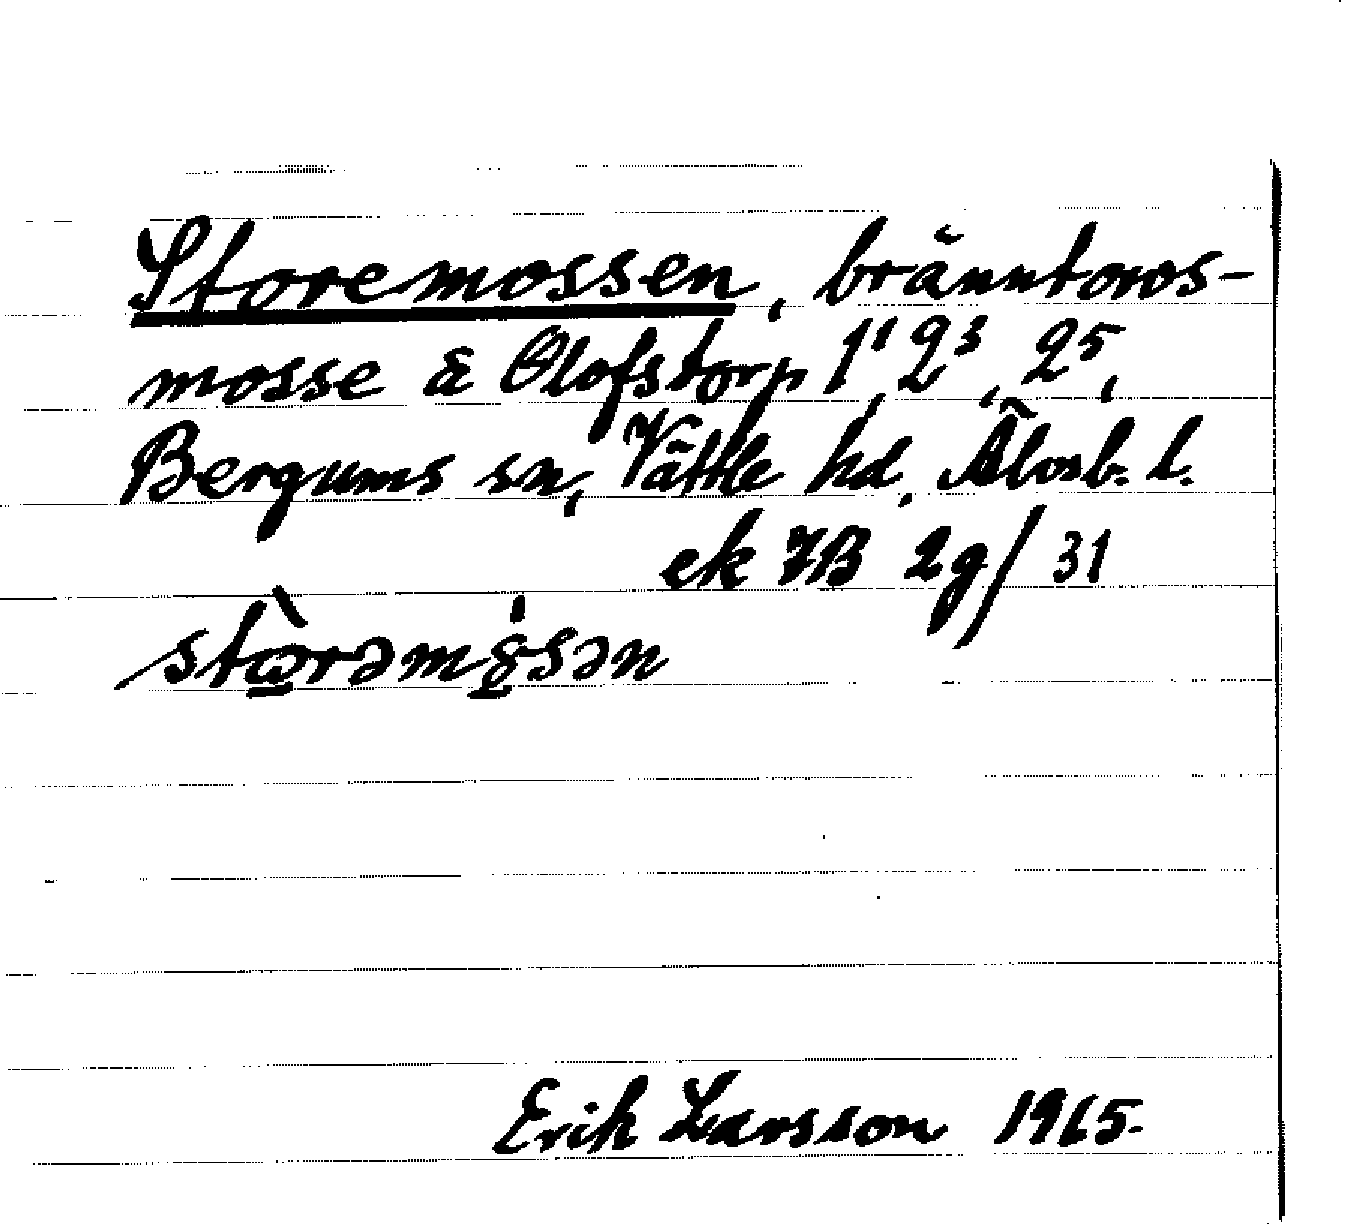 Storemossen, bränntorvs-
mosse å Olofstorp 1¹, 2³, 2⁵,
Bergums sn, Vättle hd. Älvsb. l.
ek 7B 2g/31
stὼ̲rəmo̲̍sən
Erik Larsson 1965.